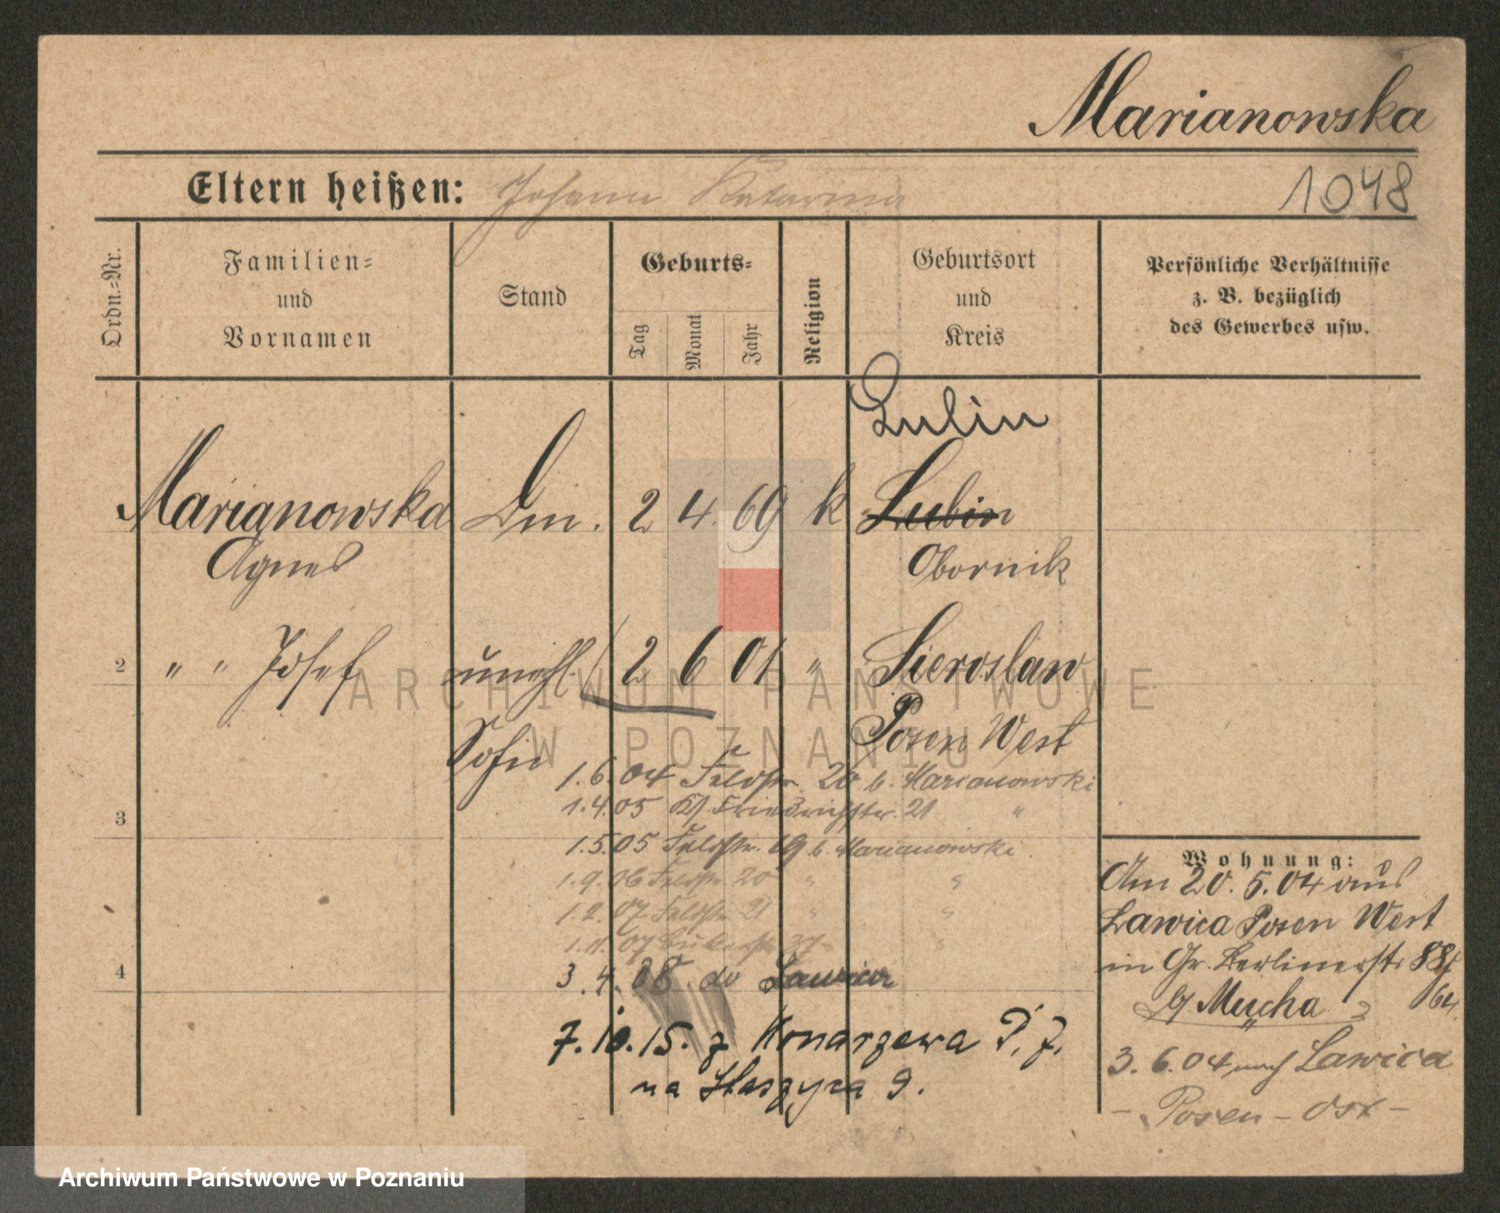 Marianowska
Eltern heißen: Johann Katarina
1048
Ordn.-Nr.
Familien-
und
Vornamen
Stand
Geburts-
Tag
Monat
Jahr
Religion
Geburtsort
und
Kreis
Persönliche Verhältnisse
z. B. bezüglich
des Gewerbes usw.
Lulin
Marianowska Dm. 2 4 69 k Lubin
Agnes Obornik
2 " " Josef unehl. 2 6 01 " Sieroslaw
Sohn Posen West
1.6.04 Feldstr. 20 b. Marianowski
3 1.4.05 Friedrichstr. 21 "
1.5.05 Feldstr. 19 b. Marianowski
1.9.06 Feldstr. 20 " "
1.2.07 Feldstr. 21 " "
1.11.07 37 "
4 3.4.08 do Lawica
7.10.15. z Konarzewa P. Z.
na Staszyca 9.
Wohnung:
Am 20.5.04 aus
Lawica Posen West
in Gr. Berlinerstr 88
64.
b/ Mucha
3.6.04 nach Lawica
- Posen - Ost -
ARCHIWUM PAŃSTWOWE
W POZNANIU
Archiwum Państwowe w Poznaniu